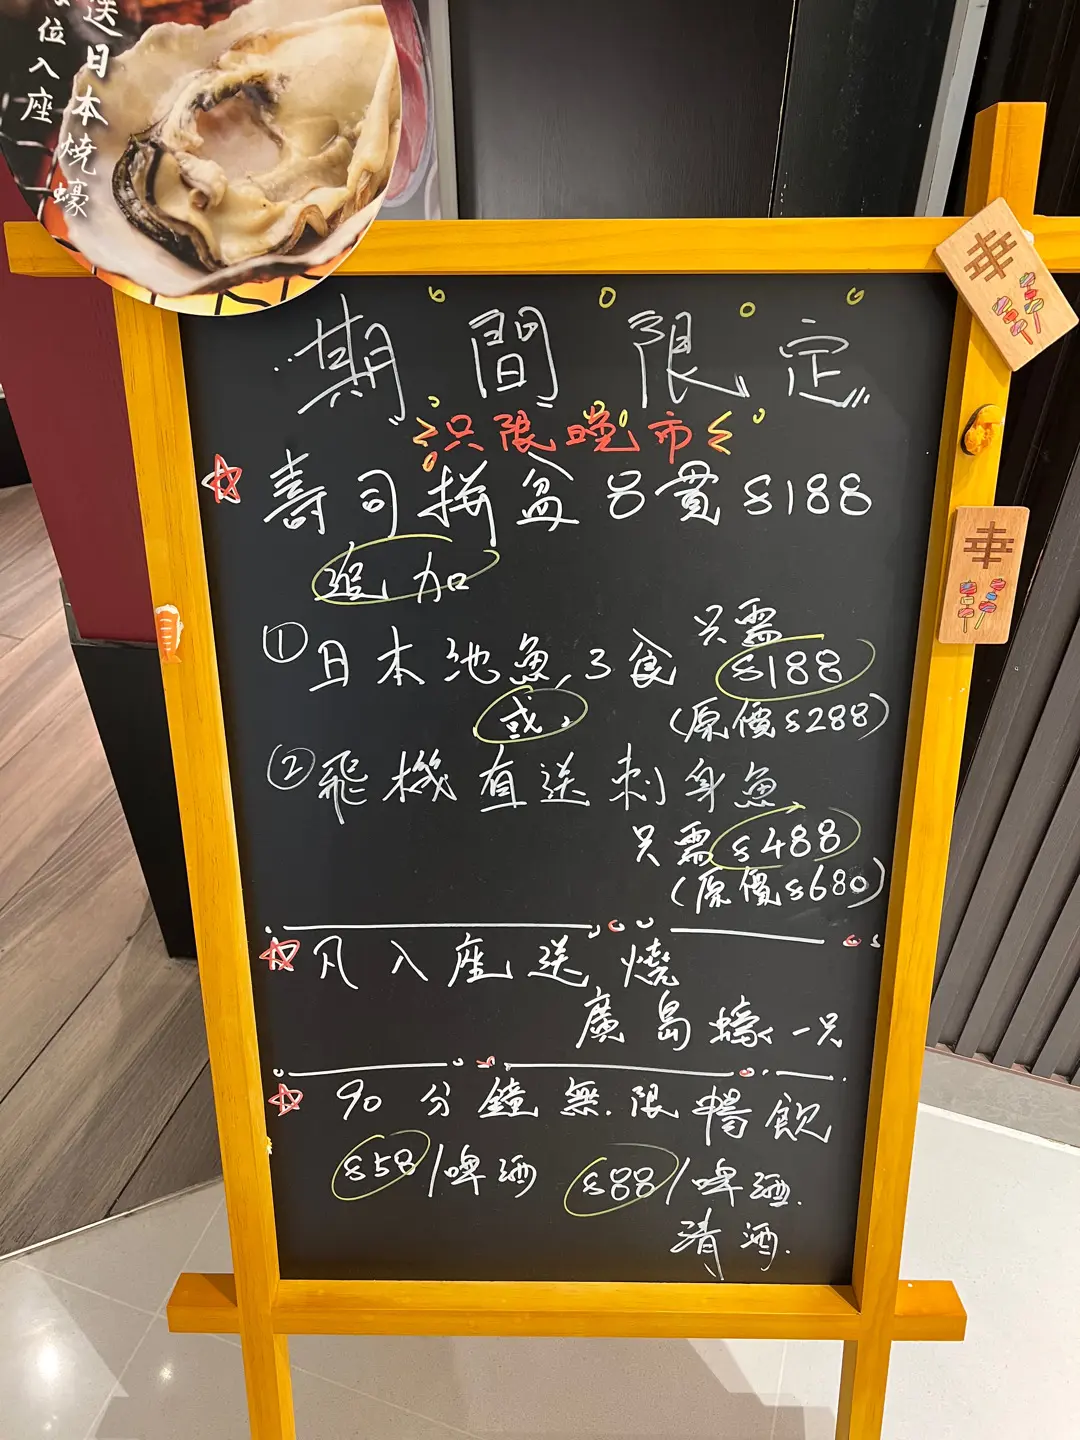 送日本燒蠔
位入座
期間限定
只限晚市
壽司拼盆 8貫 $188
追加
① 日本池魚, 3食 只需 $188
或, (原價$288)
② 飛機直送刺身魚
只需 $488
(原價$680)
凡入座送燒
廣島蠔一只
90分鐘無限暢飲
$58/啤酒 $88/啤酒.
清酒.
幸
幸